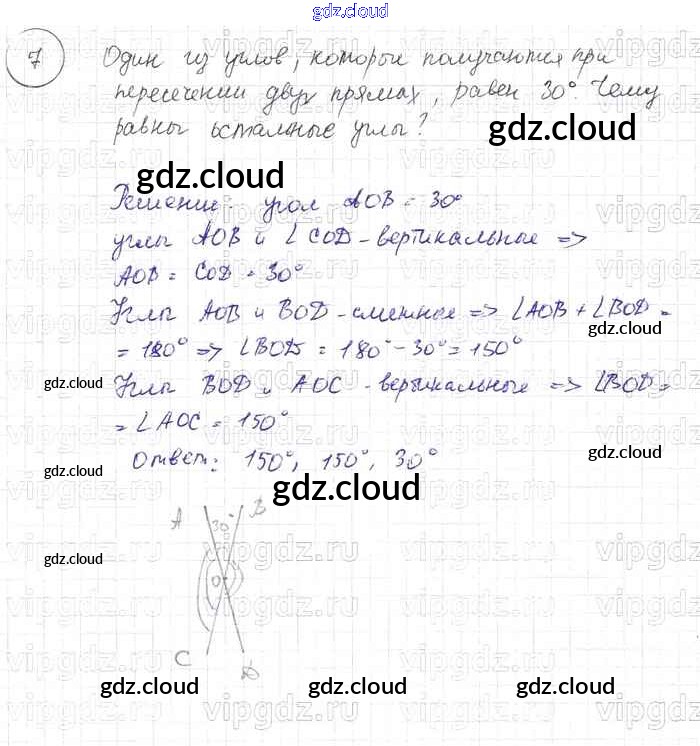 gdz.cloud
7 Один из углов, которые получаются при
пересечении двух прямых, равен 30°. Чему
равны остальные углы?
gdz.cloud
gdz.cloud
Решение: угол AOB = 30°
углы AOB и ∠ COD - вертикальные =>
AOB = COD = 30°
Углы AOB и BOD - смежные => ∠AOB + ∠BOD =
gdz.cloud
= 180° => ∠BOD = 180° - 30° = 150°
gdz.cloud
Углы BOD и AOC - вертикальные => ∠BOD =
= ∠AOC = 150°
gdz.cloud
Ответ: 150°, 150°, 30°
gdz.cloud
A 30° B
gdz.cloud
O
C D
gdz.cloud gdz.cloud gdz.cloud
vipgdz.ru